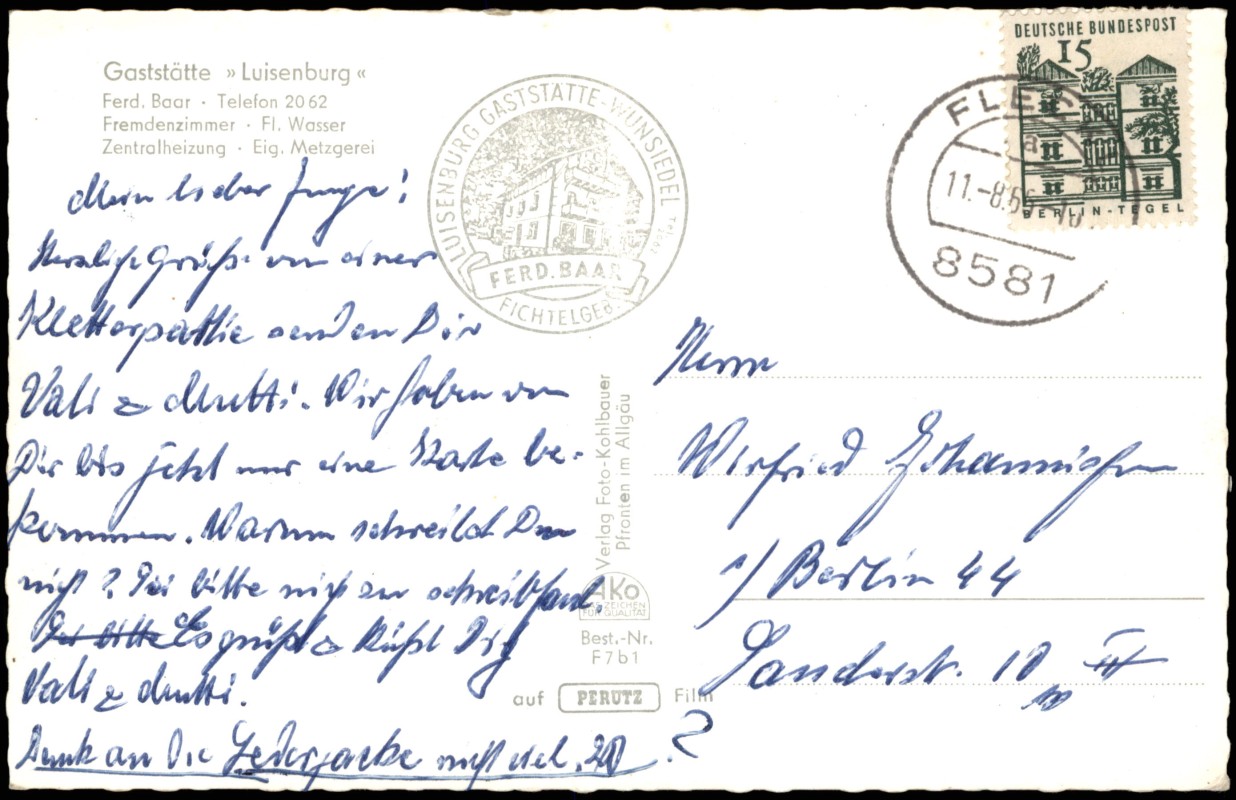 Gaststätte »Luisenburg«
Ferd. Baar · Telefon 2062
Fremdenzimmer · Fl. Wasser
Zentralheizung · Eig. Metzgerei
LUISENBURG GASTSTÄTTE · WUNSIEDEL
FERD. BAAR
FICHTELGEB.
DEUTSCHE BUNDESPOST
15
BERLIN-TEGEL
a
11.-8.6
8581
Mein lieber Junge!
Herzliche Grüße von einer
Kletterpartie senden Dir
Vati & Mutti. Wir haben von
Dir bis jetzt nur eine Karte be-
kommen. Warum schreibst Du
nicht? Sei bitte nicht zu schreibfaul.
Es grüßt & küßt Dich
Vati & Mutti.
Denk an die Lederjacke nicht viel
Verlag Foto-Kohlbauer
Pfronten im Allgäu
AKo
ZEICHEN
FÜR QUALITÄT
Best.-Nr.
F7b1
auf PERUTZ Film
Herrn
Winfried Johannischen
1/ Berlin 44
Sanderstr. 10 III